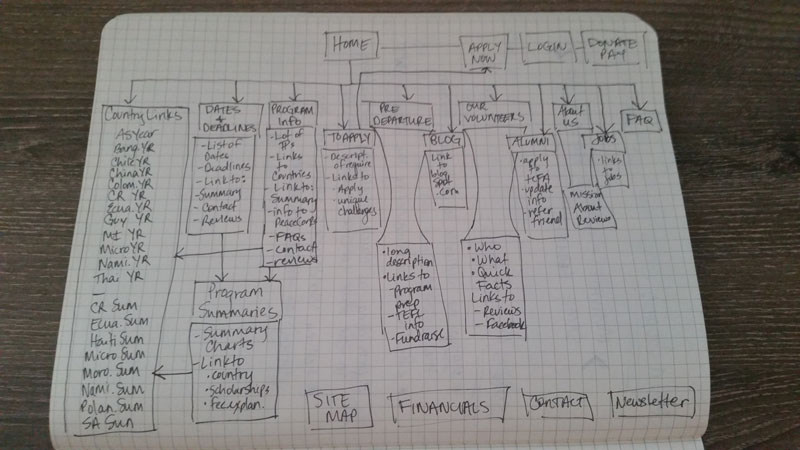 HOME
APPLY
NOW
LOGIN
DONATE
PAY
Country Links
AS Year
Bang. YR
Chile YR
China YR
Colom. YR
CR YR
Ecua. YR
Guy YR
MI YR
Micro YR
Nami. YR
Thai YR
CR Sum
Ecua. Sum
Haiti Sum
Micro Sum
Moro. Sum
Nami. Sum
Polan. Sum
SA Sum
DATES
&
DEADLINES
- List of
Dates
- Deadlines
- Link to:
- Summary
- Contact
- Reviews
PROGRAM
Info
- Lot of
- Links
to
Countries
- Link to:
Summary
- info to
PeaceCorps
- FAQs
- contact
- reviews
Program
Summaries
- Summary
Charts
- Link to
• country
• Scholarships
• Fee explan.
TO APPLY
- Descript.
of require
- Link to
- Apply
unique
challenges
PRE
DEPARTURE
• long
description
• Links to
- Program
prep
- TEFL
info
- Fundraise
BLOG
Link
to
blog
spot
.com
OUR
VOLUNTEERS
• Who
• What
• Quick
Facts
Links to
- Reviews
- Facebook
ALUMNI
• apply
to
• update
info
• refer
friend
About
us
Mission
About
Reviews
Jobs
• links
to
jobs
FAQ
SITE
MAP
FINANCIALS
CONTACT
Newsletter